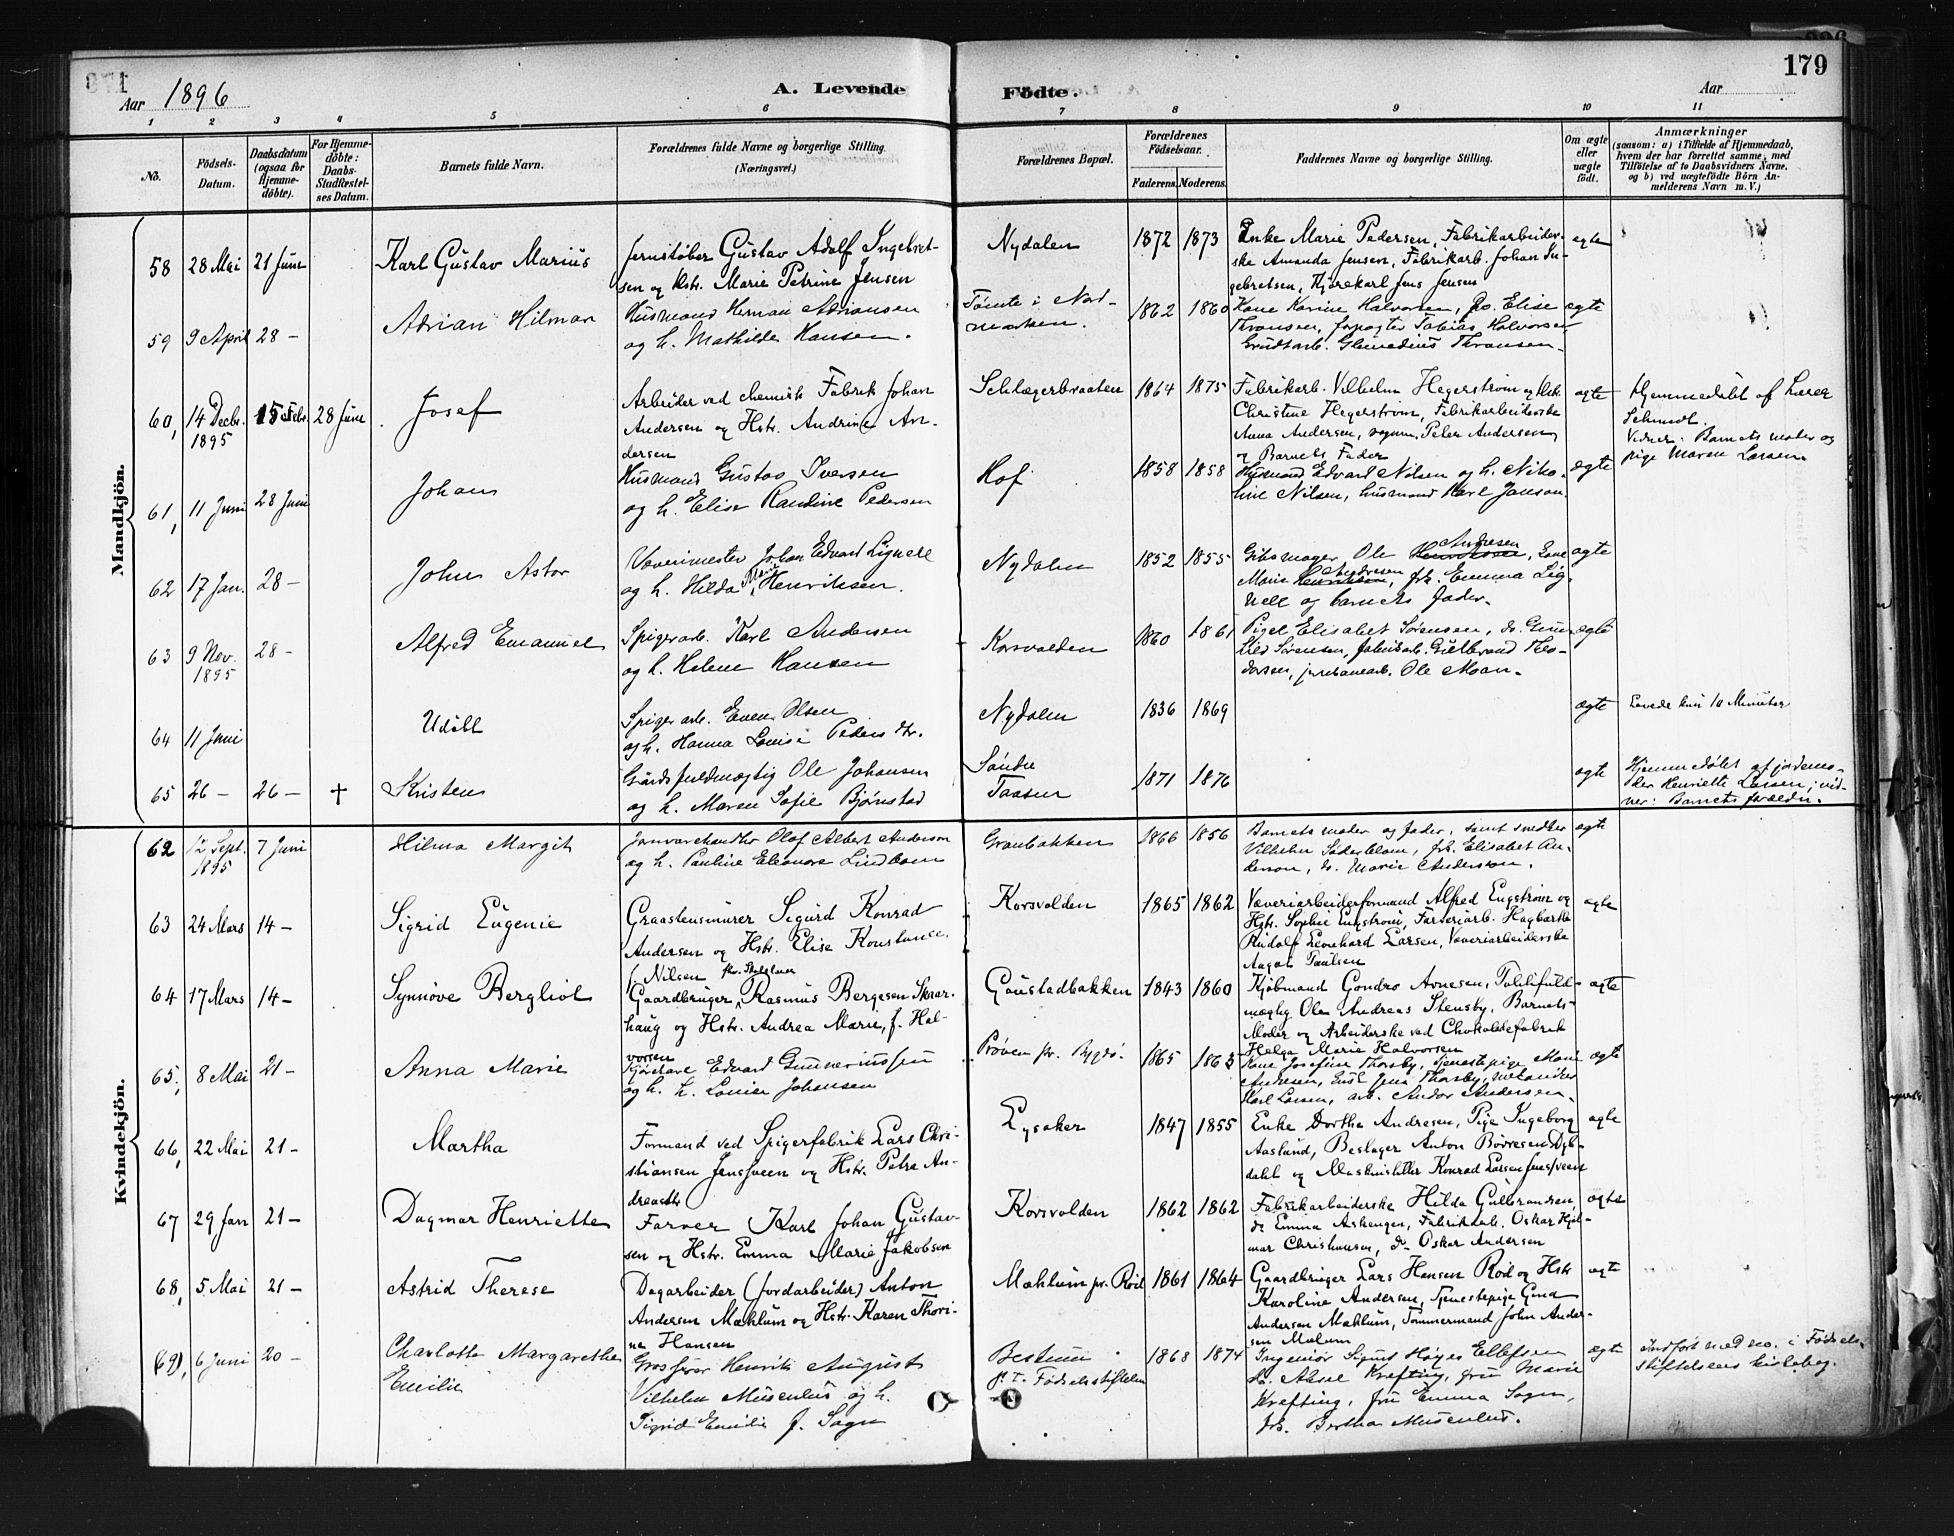 Aar 1896 A. Levende Födte. Aar 179
1 2 3 4 5 6 7 8 9 10 11
No.
Födsels-Datum.
Daabsdatum (ogsaa for Hjemme-döbte).
For Hjemme-döbte: Daabs-Stadfæstel-ses Datum.
Barnets fulde Navn.
Forældrenes fulde Navne og borgerlige Stilling. (Næringsvei.)
Forældrenes Bopæl.
Forældrenes Födselsaar.
Faderens. Moderens.
Faddernes Navne og borgerlige Stilling.
Om ægte eller uægte födt.
Anmærkninger
(saasom: a) i Tilfælde af Hjemmedaab, hvem der har forrettet samme, med Tilföielse af to Daabsvidners Navne, og b) ved uægtefödte Börn Anmelderens Navn m. V.)
Mandkjön.
58 28 Mai 21 Juni Karl Gustav Marius
Jernstøber Gustav Adolf Ingebret-
sen og Hstr. Marie Petrine Jensen
Nydalen 1872 1873
Enke Marie Pedersen, Fabrikarbeider-
ske Amanda Jensen, Fabrikarb. Johan In-
gebretsen, Kjørekarl Jens Jensen
ægte
59 9 April 28 – Adrian Hilmar
Husmand Herman Adriansen
og h. Mathilde Hansen.
Tømte i Nord-
marken. 1862 1860
Kone Karine Halvorsen, do. Elise
Thransen, forpagter Tobias Halvorsen
Grudtarb. Thransen.
ægte
60, 14 Decbr. 1895 15 Febr. 28 Juni Josef
Arbeider ved chemisk Fabrik Johan
Andersen og Hstr. Andrine An-
dersen
Schlægerbraaten 1864 1875
Fabrikarb. Vilhelm Hegerstrøm og Hstr.
Christine Hegerstrøm, Fabrikarbeiderske
Anna Andersen, Peter Andersen
og Barnets Fader
ægte
Hjemmedøbt af Lærer
Schmidt.
Vidner: Barnets moder og
pige Maren Larsen.
61, 11 Juni 28 Juni Johan
Husmand Gustav Iversen
og h. Elise Randine Pedersen
Hof 1858 1858
Husmand Edvart Nilsen og h. Niko-
line Nilsen, husmand Karl Janson
ægte
62 17 Jan. 28 – John Astor
Væverimester Johan Edvard Lignell
og h. Hilda Marie Henriksen.
Nydalen 1852 1855
Gibsmager Ole Andresen, Enke
Marie Andresen, frk. Emma Lig-
nell og barnets fader.
ægte
63 9 Nov. 1895 28 – Alfred Emanuel
Spigerarb. Karl Andersen
og h. Helene Hansen
Korsvolden 1860 1861
Pige Elisabet Sørensen, do. Gun-
hild Sørensen, fabrikarb. Gulbrand Theo-
dorsen, jernbanearb. Ole Moan.
ægte
64 11 Juni Udöbt
Spigerarb. Even Olsen
og h. Hanna Louise Peders dtr.
Nydalen 1836 1869
ægte
Levede kun 10 Minuter
65 26 – 26 – † Kristen
Gaardsfuldmægtig Ole Johansen
og h. Maren Sofie Bjørnstad
Søndre
Taasen 1871 1876
ægte
Hjemmedøbt af jordemo-
der Henriette Larsen; vid-
ner: Barnets forældre.
Kvindekjön.
62 12 Sept. 1895 7 Juni Hilma Margit
Jernvarehandler Olof Albert Anderson
og h. Pauline Eleonore Lindbom
Granbakken 1866 1856
Barnets moder og fader, samt snedker
Vilhelm Söderblom, frk. Elisabet An-
derson, do. Marie Anderson.
ægte
63 24 Mars 14 – Sigrid Eugenie
Graastensmurer Sigurd Konrad
Andersen og Hstr. Elise Konstance
f. Nilsen
Korsvolden 1865 1862
Væveriarbeiderformand Alfred Engström og
Hstr. Sophie Engström, Farveriarb. Hagbarth
Rudolf Leonhard Larsen, Væveriarbeiderske
Aagot Paulsen
ægte
64 17 Mars 14 – Synnöve Bergliot
Gaardbruger Rasmus Bergesen Skaar-
haug og Hstr. Andrea Marie, f. Hal-
vorsen
Gaustadbakken 1843 1860
Kjöbmand Gondro Avnesen, Toldfuld-
mægtig Ole Andreas Stensby, Barnets
Moder og Arbeiderske ved Chokoladefabrik
Helga Marie Halvorsen
ægte
65, 8 Mai 21 – Anna Marie
Kjörekarl Edvard Guneriussen
og h. Lovise Johansen
Prøven pr. Bygdø. 1865 1863
Kone Josefine Thorsby, tjenestepige Marie
Andresen, Jens Thorsby, mekaniker
Karl Larsen, arb. Andor Andersen.
ægte
66, 22 Mai 21 – Martha
Formand ved Spigerfabrik Lars Chri-
stiansen Jensveen og Hstr. Petra An-
dreasdtr
Lysaker 1847 1855
Enke Dorthea Andresen, Pige Ingeborg
Aaslund, Beslager Anton Börresen Dyb-
dahl og Maskinstiller Konrad Larsen Jensveen
ægte
67 29 Jan 21 – Dagmar Henriette
Farver Karl Johan Gustav-
sen og Hstr. Emma Marie Jakobsen
Korsvolden 1862 1862
Fabrikarbeiderske Hilda Gulbrandsen,
do Emma Askengen, Fabrikarb. Oskar Hjal-
mar Christiansen, do Oskar Andersen
ægte
68, 5 Mai 21 – Astrid Therese
Dagarbeider (jordarbeider) Anton
Andersen Mæhlum og Hstr. Karen Thori-
ne Hansen
Mæhlum pr. Röd 1861 1864
Gaardbruger Lars Hansen Röd og Hstr
Karoline Andersen, Tjenestepige Gina
Andersen Mæhlum, Tömmermand John Ander-
sen Mælum
ægte
(69), 6 Juni 20 – Charlotte Margarethe
Emilie
Grosserer Henrik August
Vilhelm Musculus og h.
Sigrid Emilie f. Sogn
Bestum
p.t. Fødselsstiftelsen 1868 1874
Ingeniør Sigurd Høyer Ellefsen,
Aksel Krefting, fru Marie
Krefting, fru Emma Sogn,
frk. Bertha Musculus.
ægte
Indført med no. i Fødsels-
stiftelsens kirkebog.